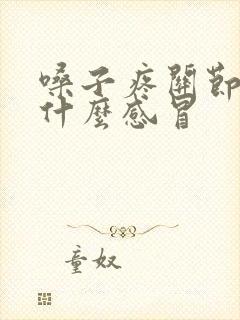 嗓子疼關節
什麼感冒
童奴